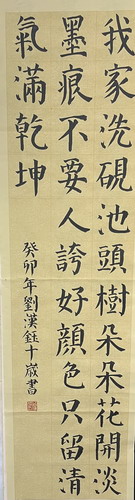 我家洗硯池頭樹朵朵花開淡
墨痕不要人誇好顏色只留清
氣滿乾坤
癸卯年劉漢鈺十歲書